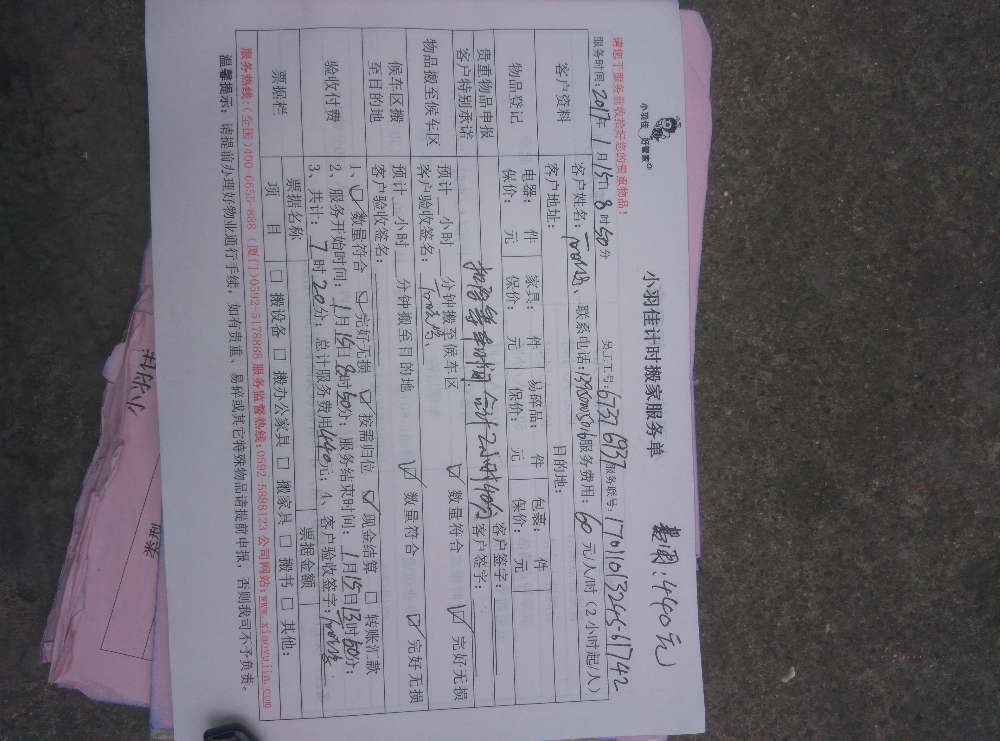 小羽佳 好管家
小羽佳计时搬家服务单
费用:440元
请您于服务前收拾好您的贵重物品!
员工工号:6737 6937 服务联号:1701101013245-61742
服务时间:2017年1月15日8时50分
客户资料
客户姓名: 联系电话:13950005016 服务费用:60元/人/时(2小时起/人)
客户地址: 目的地:
物品登记
电器: 件 家具: 件 易碎品: 件 包裹: 件
保价: 元 保价: 元 保价: 元 保价: 元
贵重物品申报 客户签字:
客户特别承诺 客户签字:
时间,合计2小时40分
物品搬至候车区
预计 小时 分钟搬至候车区 ☑ 数量符合 ☑ 完好无损
客户验收签名:
候车区搬至目的地
预计 小时 分钟搬至目的地 ☑ 数量符合 ☑ 完好无损
客户验收签名:
验收付费
1、☑ 数量符合 ☑ 完好无损 ☑ 按需归位 ☑ 现金结算 □ 转账汇款
2、服务开始时间:1月15日8时50分;服务结束时间:1月15日13时50分;
3、共计:7时20分;总计服务费用440元;4、客户验收签字:
票据栏
票据名称 票据金额
项目 □ 搬设备 □ 搬办公家具 □ 搬家具 □ 搬书 □ 其他:
服务热线:(全国)400-0655-888 (厦门)0592-5178888 服务监督热线:0592-5898123 公司网站:www.xiaoyujia.com
温馨提示:请提前办理好物业通行手续,如有贵重、易碎或其它特殊物品请提前申报,否则我司不予负责。